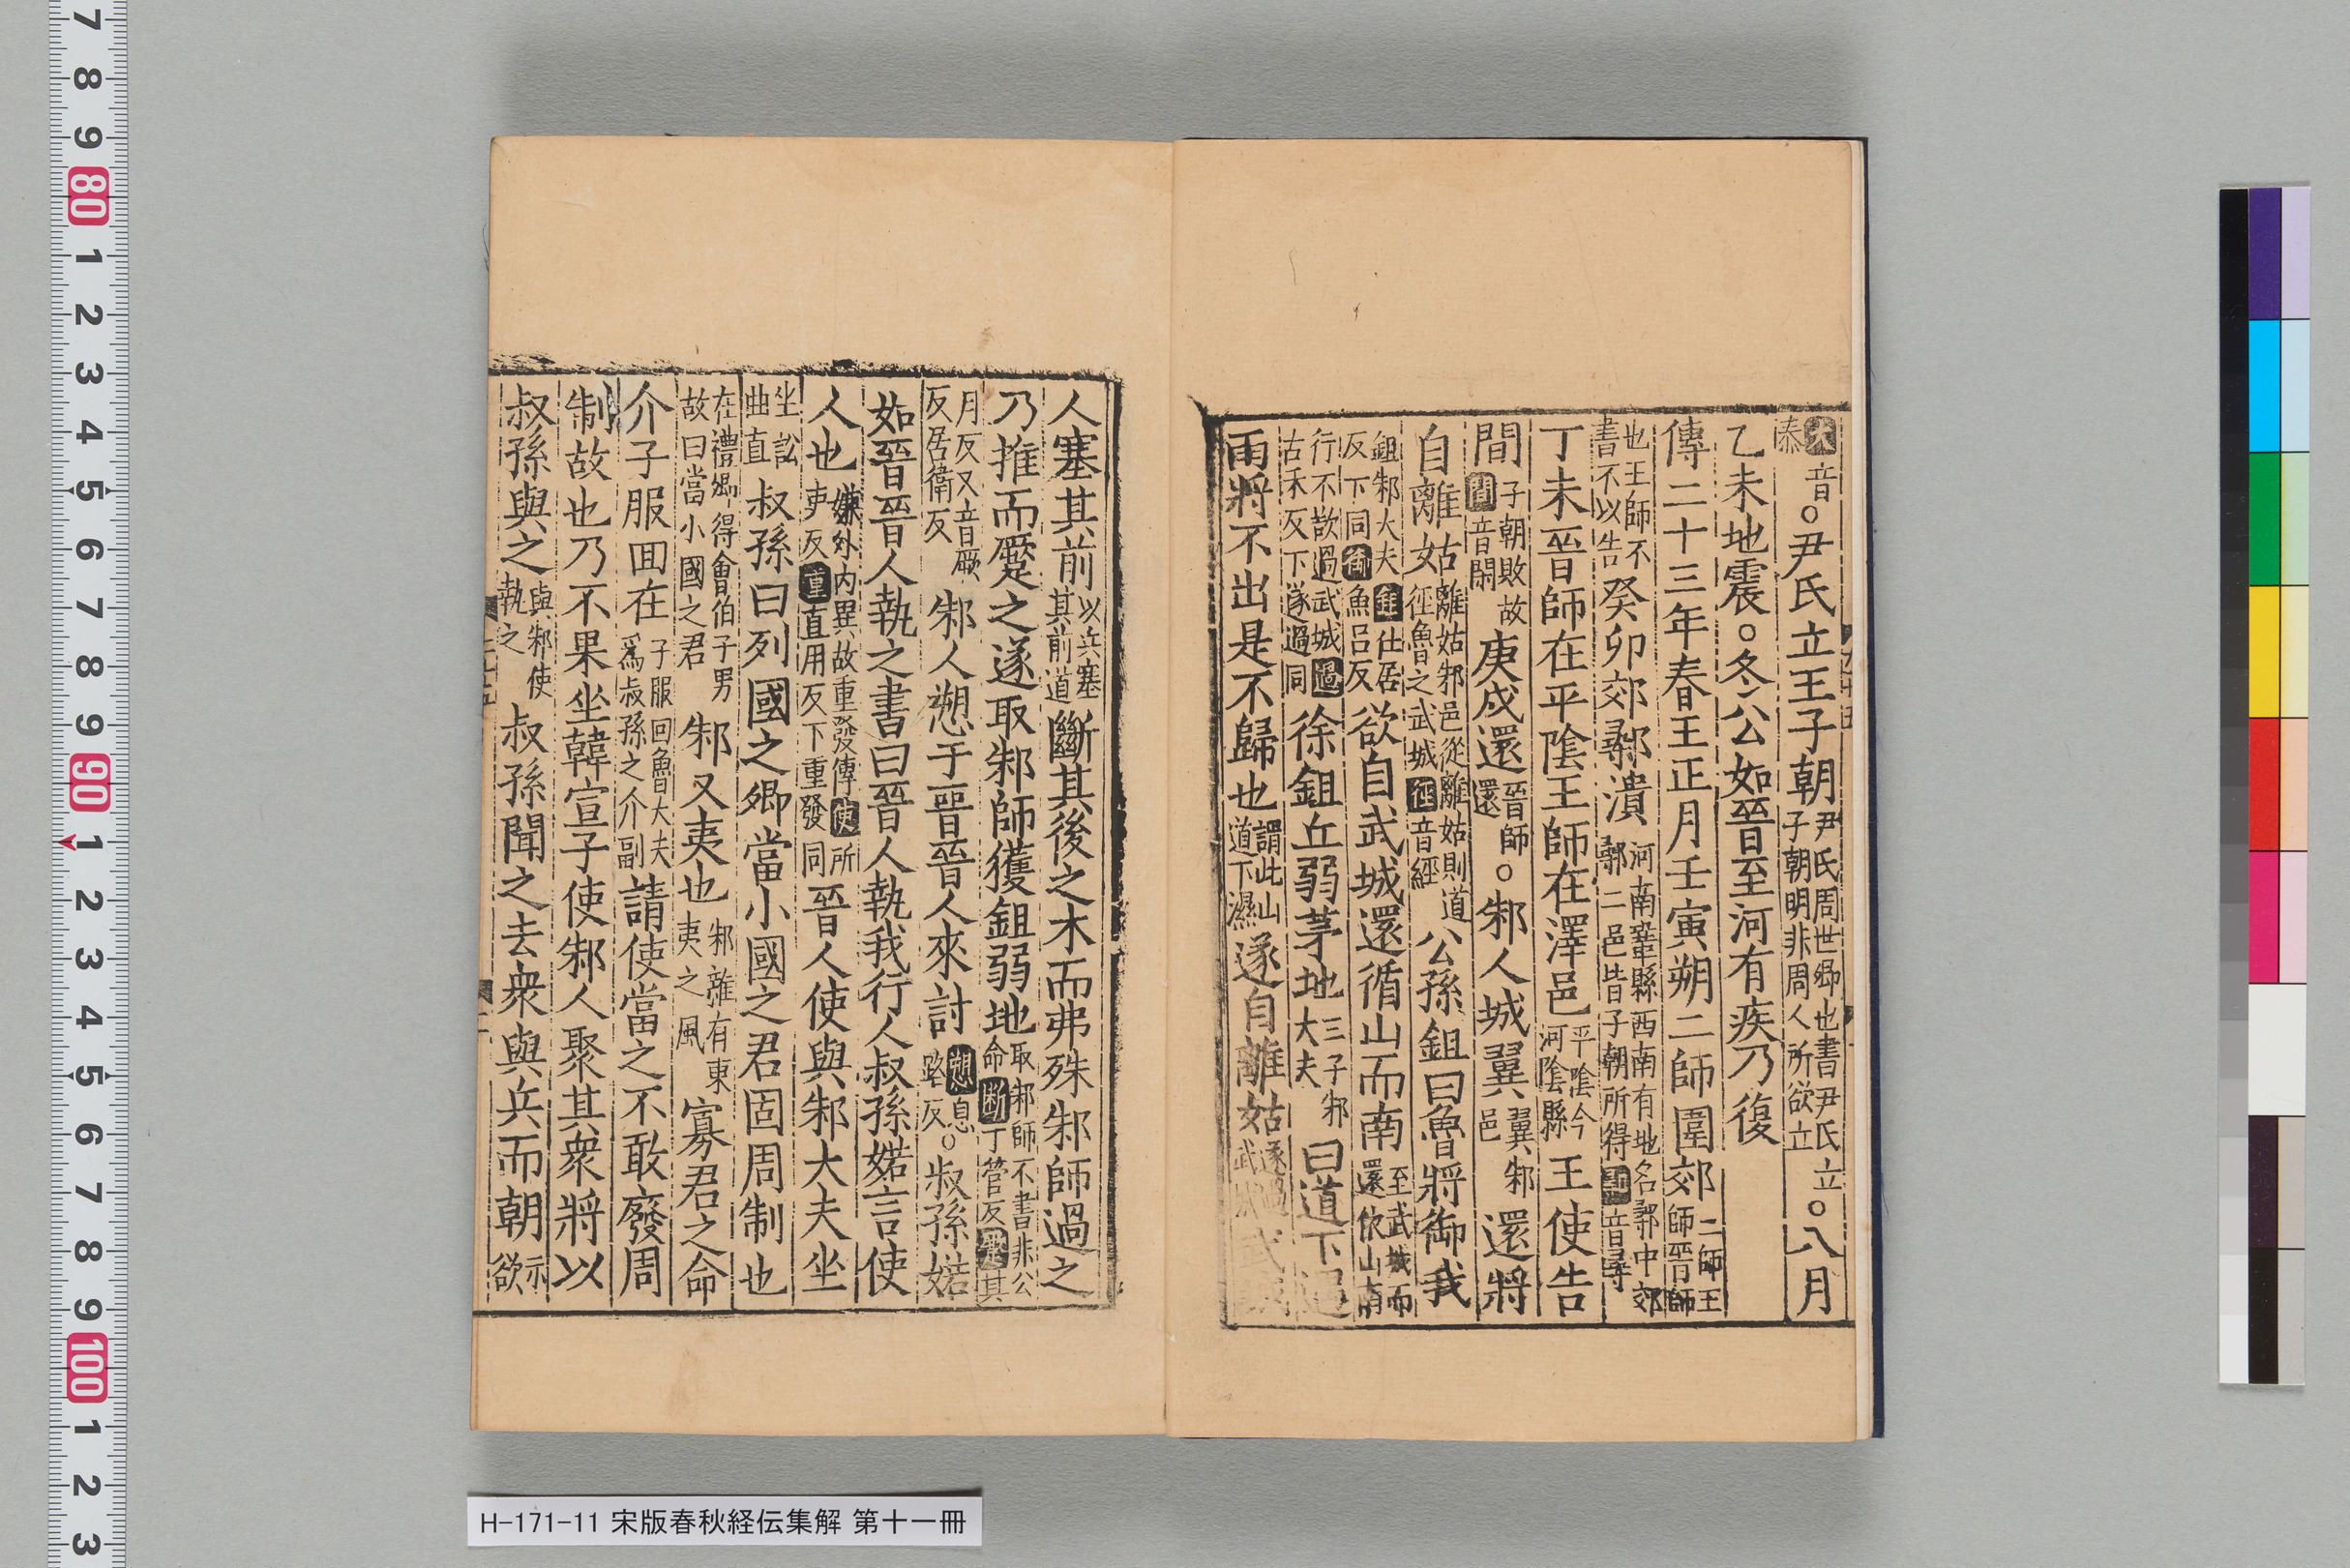 大音泰○尹氏立王子朝尹氏周世卿也書尹氏立子朝明非周人所欲立○八月
乙未地震○冬公如晉至河有疾乃復
傳二十三年春王正月壬寅朔二師圍郊二師王師晉師
也王師不書不以告癸卯郊鄩潰河南鞏縣西南有地名鄩中郊鄩二邑皆子朝所得鄩音尋
丁未晉師在平陰王師在澤邑平陰今河陰縣王使告
間子朝敗故間音閑庚戌還晉師還○邾人城翼翼邾邑還將
自離姑離姑邾邑從離姑則道徑魯之武城徑音經公孫鉏曰魯將御我
鉏邾大夫鉏仕居反下同御魚呂反欲自武城還循山而南至武城而還依山南
行不欲過武城過古禾反下遂過同徐鉏丘弱茅地三子邾大夫曰道下遇
雨將不出是不歸也謂此山道下濕遂自離姑遂過武城武城
人塞其前以兵塞其前道斷其後之木而弗殊邾師過之
乃推而蹷之遂取邾師獲鉏弱地取邾師不書非公命斷丁管反蹷其
月反又音厥反居衛反邾人愬于晉晉人來討愬息路反○叔孫婼
如晉晉人執之書曰晉人執我行人叔孫婼言使
人也嫌外內異故重發傳使所吏反重直用反下重發同晉人使與邾大夫坐
坐訟曲直叔孫曰列國之卿當小國之君固周制也
在禮卿得會伯子男故曰當小國之君邾又夷也邾雜有東夷之風寡君之命
介子服回在子服回魯大夫為叔孫之介副請使當之不敢廢周
制故也乃不果坐韓宣子使邾人聚其衆將以
叔孫與之與邾使執之叔孫聞之去衆與兵而朝示欲
7 8 9 80 1 2 3 4 5 6 7 8 9 90 1 2 3 4 5 6 7 8 9 100 1 2 3
H-171-11 宋版春秋経伝集解 第十一冊